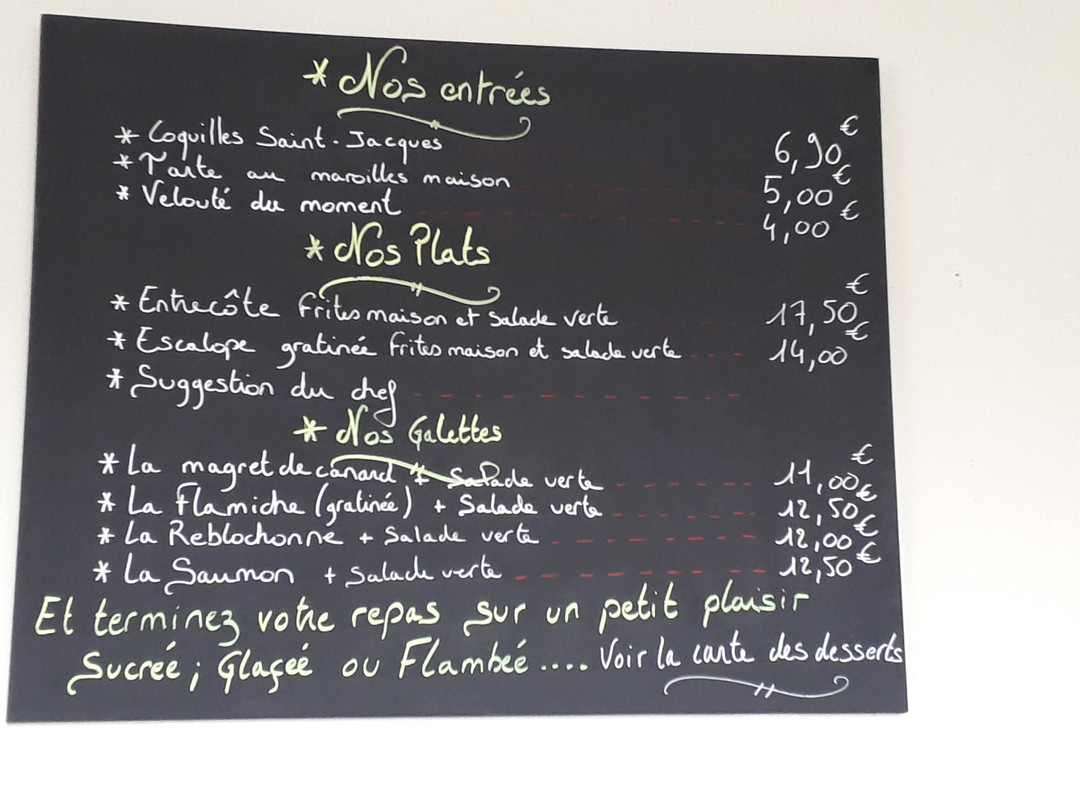 * Nos entrées
* Coquilles Saint-Jacques 6,90€
* Tarte au maroilles maison 5,00€
* Velouté du moment 4,00€
* Nos Plats
* Entrecôte frites maison et salade verte 17,50€
* Escalope gratinée frites maison et salade verte 14,00€
* Suggestion du chef
* Nos Galettes
* La magret de canard + Salade verte 11,00€
* La Flamiche (gratinée) + Salade verte 12,50€
* La Reblochonne + Salade verte 12,00€
* La Saumon + Salade verte 12,50€
Et terminez votre repas sur un petit plaisir
Sucréé ; Glaçéé ou Flambéé .... Voir la carte des desserts